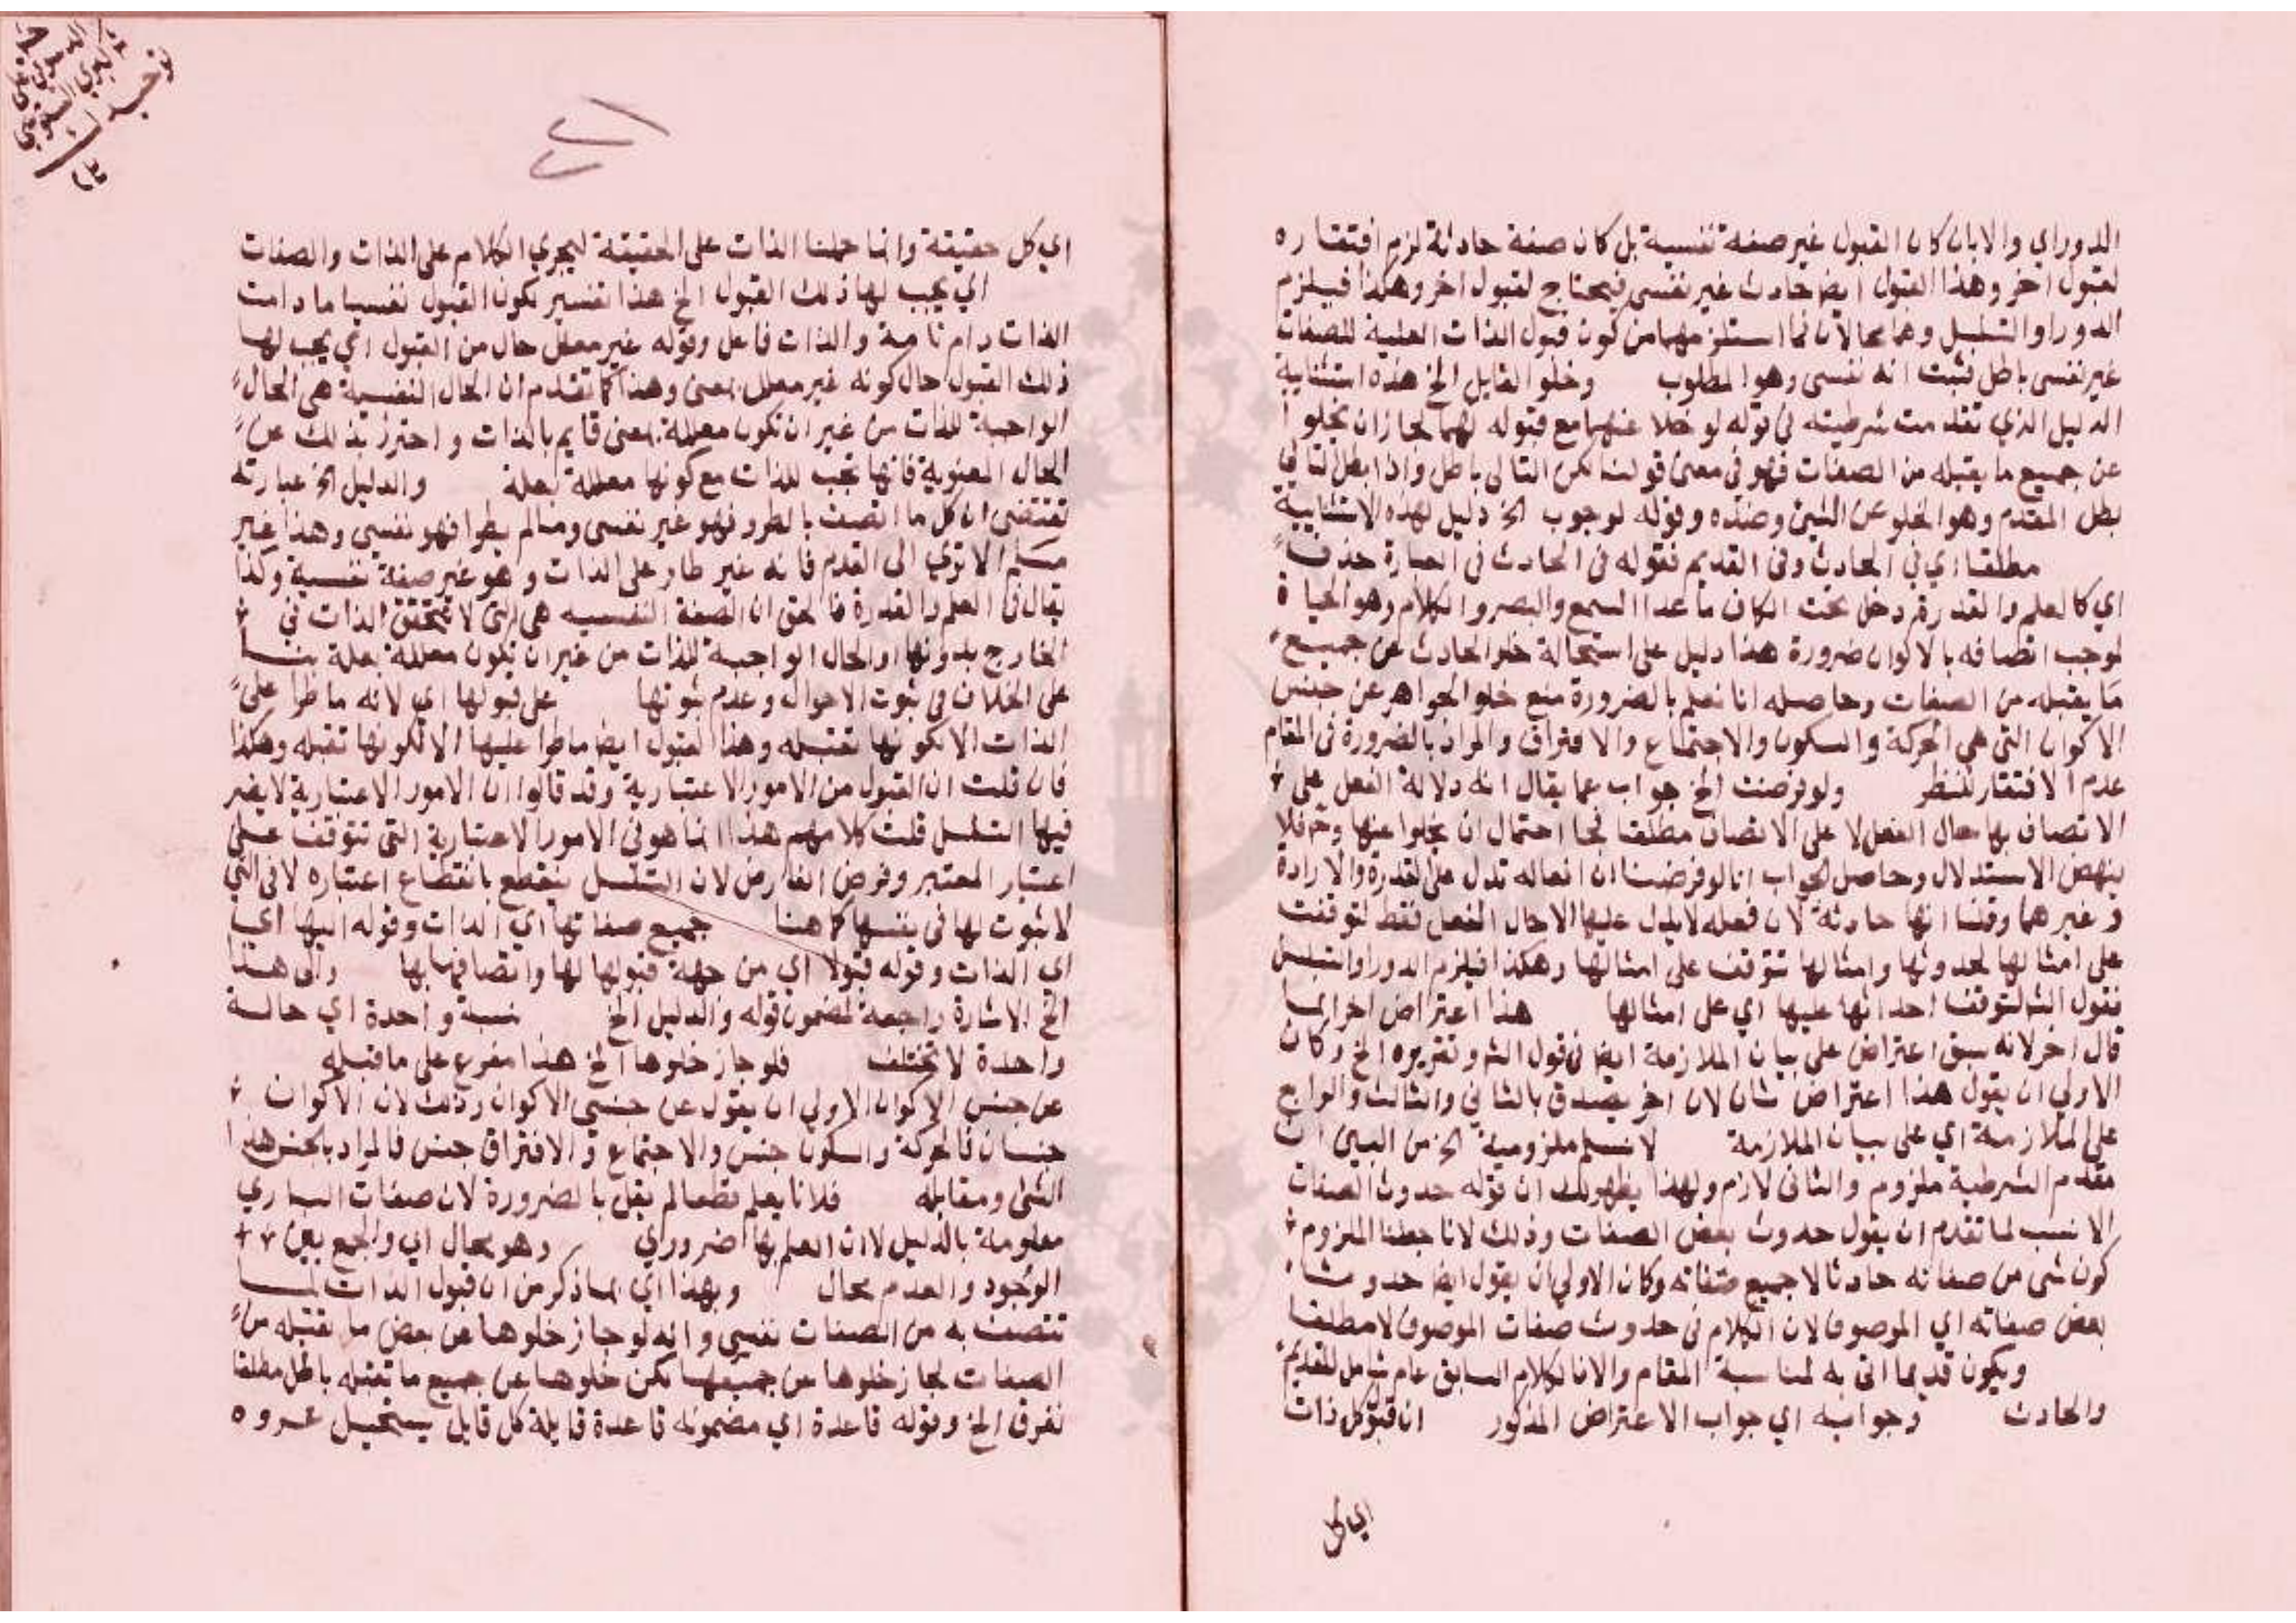 الدور اي والا بان كان القبول غير صفة نفسية بل كان صفة حادثة لزم افتقاره
لقبول اخر وهذا القبول ايض حادث غير نفسي فيحتاج لقبول اخر وهكذا فيلزم
الدور او التسلسل وهما محالان فما استلزمهما من كون قبول الذات العلية للصفات
غير نفسي باطل فثبت انه نفسي وهو المطلوب وخلو القابل الخ هذه استثنائية
الدليل الذي تقدمت شرطيته في قوله لو خلا عنهما مع قبوله لهما لجاز ان يخلو
عن جميع ما يقبله من الصفات فهو في معنى قولنا لكن التالي باطل واذا بطل التا
بطل المقدم وهو الخلو عن الشئ وضده وقوله لوجوب الخ دليل لهذه الاستثنائية
مطلقا اي في الحادث وفي القديم فقوله في الحادث في العبارة حذف
اي كالعلم والقدرة دخل تحت الكاف ما عدا السمع والبصر والكلام وهو الحياة
لوجب اتصافه بالاكوان ضرورة هذا دليل على استحالة خلو الحادث عن جميع
ما يقبله من الصفات وحاصله انا نعلم بالضرورة منع خلو الجواهر عن جنس
الاكوان التي هي الحركة والسكون والاجتماع والافتراق والمراد بالضرورة في المقام
عدم الافتقار للنظر ولو فرضت الخ جواب عما يقال انه دلالة الفعل على
الاتصاف بها حال الفعل لا على الاتصاف مطلقا فجا احتمال ان يخلو عنها وح فلا
ينهض الاستدلال وحاصل الجواب انا لو فرضنا ان افعاله تدل على القدرة والارادة
وغيرهما وقلنا انها حادثة لان فعله لا يدل عليها الا حال الفعل فقط لتوقفت
على امثالها لحدوثها وامثالها تتوقف على امثالها وهكذا فيلزم الدور او التسلسل
فقول الش لتوقف احداثها عليها اي على امثالها هذا اعتراض اخر انما
قال اخر لانه سبق اعتراض على بيان الملازمة ايض في قول الش وتقريره الخ وكان
الاولي ان يقول هذا اعتراض ثان لان اخر يصدق بالثاني والثالث والرابع
على الملازمة اي على بيان الملازمة لا نسلم ملزومية الخ من البين ان
مقدم الشرطية ملزوم والثاني لازم ولهذا يظهر لك ان قوله حدوث الصفات
الانسب لما تقدم ان يقول حدوث بعض الصفات وذلك لانا جعلنا الملزوم
كون شى من صفاته حادثا لا جميع صفاته وكان الاولي ان يقول ايض حدوث
بعض صفاته اي الموصوف لان الكلام في حدوث صفات الموصوف لا مطلقا
ويكون قديما اتى به لمناسبة المقام والا فالكلام السابق عام شامل للقديم
والحادث وجوابه اي جواب الاعتراض المذكور ان قبول كل ذات
اي كل
اي كل حقيقة وانما حملنا الذات على الحقيقة ليجري الكلام على الذات والصفات
اي يجب لها ذلك القبول الخ هذا تفسير لكون القبول نفسيا ما دامت
الذات دام تامة والذات فاعل وقوله غير معلل حال من القبول اي يجب لها
ذلك القبول حال كونه غير معلل بمعنى وهذا كما تقدم ان الحال النفسية هي الحال
الواجبة للذات من غير ان تكون معللة بمعنى قايم بالذات واحترز بذلك عن
الحال المعنوية فانها تجب للذات مع كونها معللة بعلة والدليل الخ عبارته
تقتضي ان كل ما اتصف بالطرو فهو غير نفسي وما لم يطرا فهو نفسي وهذا غير
مسلم الا ترى الى القدم فانه غير طار على الذات وهو غير صفة نفسية وكذا
يقال في العلم والقدرة فالحق ان الصفة النفسيه هي التي لا تتحقق الذات في
الخارج بدونها او الحال الواجبة للذات من غير ان تكون معللة بعلة بنا
على الخلاف في ثبوت الاحوال وعدم ثبوتها على قبولها اي لانه ما طرا على
الذات الا لكونها تقبله وهذا القبول ايض ما طرا عليها الا لكونها تقبله وهكذا
فان قلت ان القبول من الامور الاعتبارية وقد قالوا ان الامور الاعتبارية لا يضر
فيها التسلسل قلت كلامهم هذا انما هو في الامور الاعتبارية التي تتوقف على
اعتبار المعتبر وفرض الفارض لان التسلسل ينقطع بانقطاع اعتباره لا في التي
لا ثبوت لها في نفسها كما هنا جميع صفاتها اي الذات وقوله اليها اي
اي الذات وقوله قبولا اي من جهة قبولها لها واتصافها بها والى هذا
الخ الاشارة راجعة لمضمون قوله والدليل الخ نسبة واحدة اي حالة
واحدة لا تختلف فلو جاز خلوها الخ هذا مفرع على ما قبله
عن جنس الاكوان الاولي ان يقول عن جنسي الاكوان وذلك لان الاكوان
جنسان فالحركة والسكون جنس والاجتماع والافتراق جنس فالمراد بالجنس هنا
الشئ ومقابله فلانا يعلم قطعا لم يقل بالضرورة لان صفات الباري
معلومة بالدليل لا ان العلم بها ضروري وهو محال اي والجمع بين
الوجود والعدم محال وبهذا اي بما ذكر من ان قبول الذات لما
تتصف به من الصفات نفسي وانه لو جاز خلوها عن بعض ما تقبله من
الصفات لجاز خلوها عن جميعها لكن خلوها عن جميع ما تقبله باطل مطلقا
نفرق الخ وقوله قاعدة اي مضمونه قاعدة قايلة كل قابل يستحيل عروه